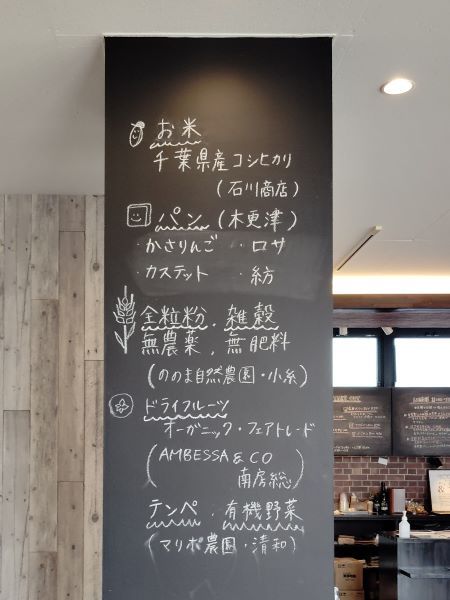 お米
千葉県産コシヒカリ
(石川商店)
パン(木更津)
・かさりんご ・ロサ
・カステット ・紡
全粒粉・雑穀
無農薬，無肥料
(ののま自然農園・小糸)
ドライフルーツ
オーガニック・フェアトレード
(AMBESSA & CO
南房総)
テンペ・有機野菜
(マリポ農園・清和)